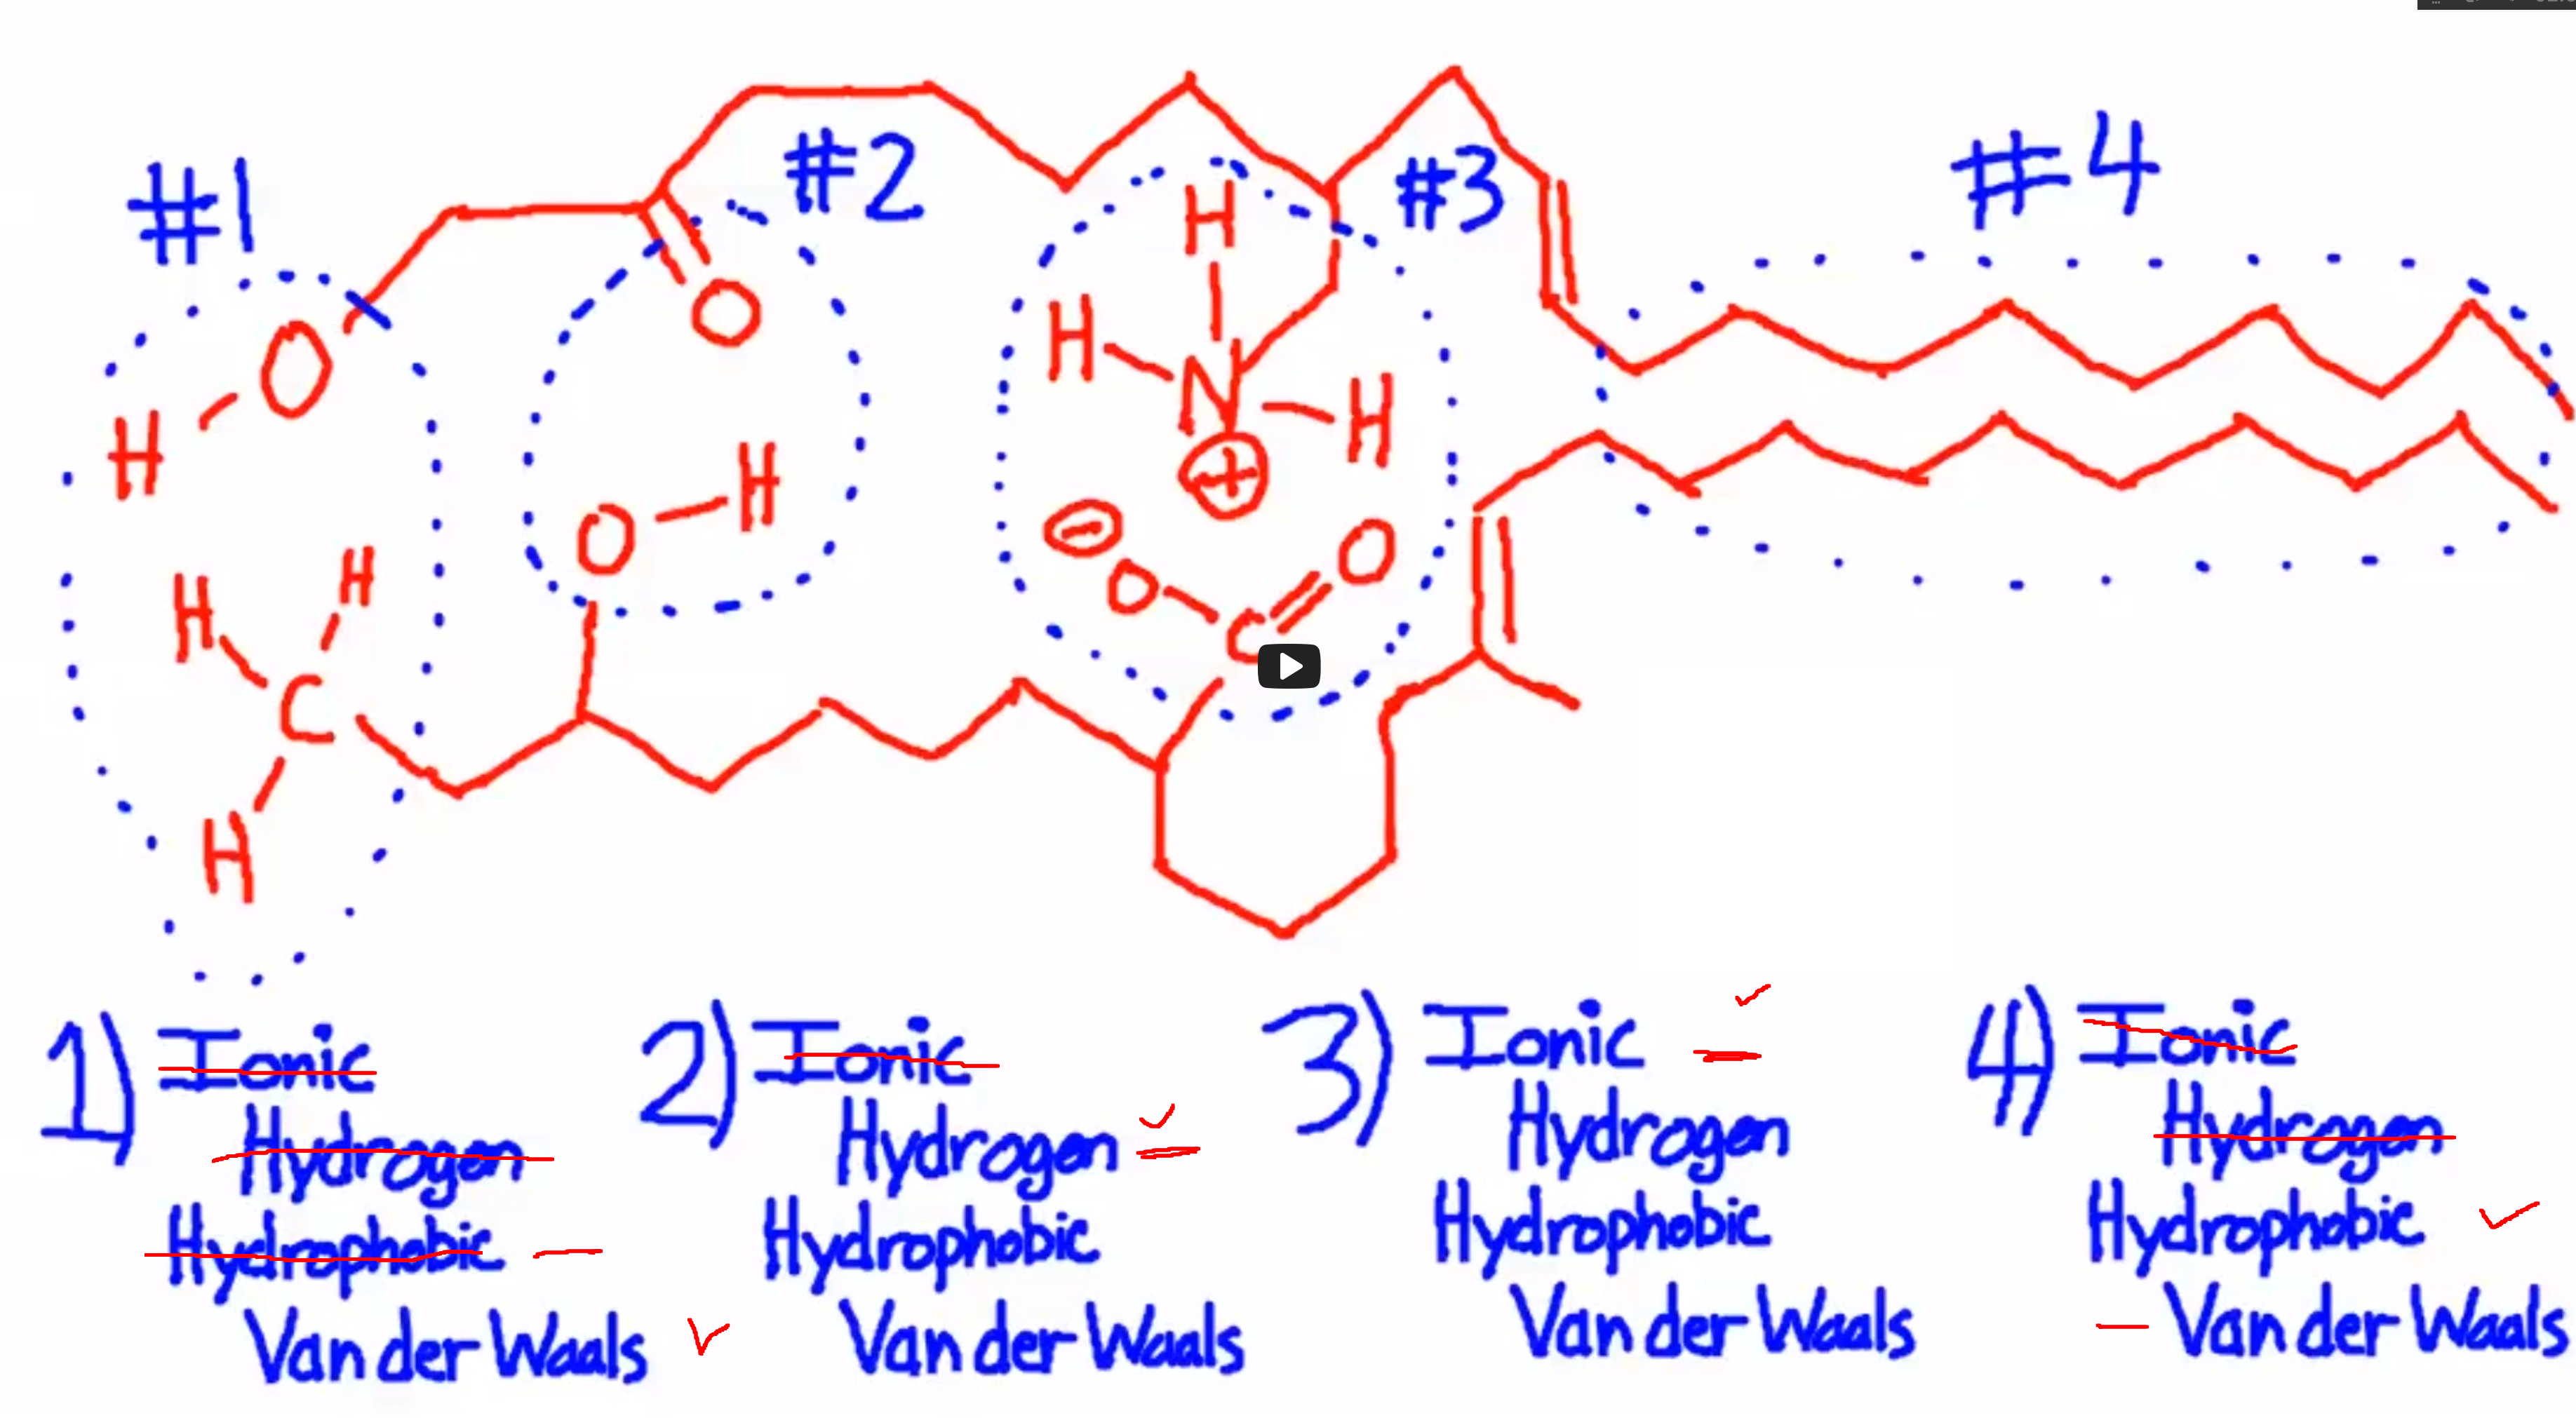 #1
#2
#3
#4
H
H
H
O
O
N
H
H
H
O
⊕
⊖
O
O
H
H
C
C
H
1) Ionic
Hydrogen
Hydrophobic
Van der Waals
2) Ionic
Hydrogen
Hydrophobic
Van der Waals
3) Ionic
Hydrogen
Hydrophobic
Van der Waals
4) Ionic
Hydrogen
Hydrophobic
Van der Waals